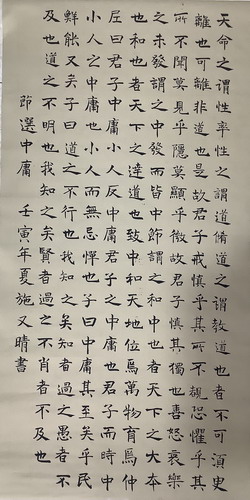 天命之謂性率性之謂道脩道之謂教道也者不可須臾
離也可離非道也是故君子戒慎乎其所不覩恐懼乎其
所不聞莫見乎隱莫顯乎微故君子慎其獨也喜怒哀樂
之未發謂之中發而皆中節謂之和中也者天下之大本
也和也者天下之達道也致中和天地位焉萬物育焉仲
尼曰君子中庸小人反中庸君子之中庸也君子而時中
小人之中庸也小人而無忌憚也子曰中庸其至矣乎民
鮮能久矣子曰道之不行也我知之矣知者過之愚者不
及也道之不明也我知之矣賢者過之不肖者不及也
節選中庸 壬寅年夏施又晴書